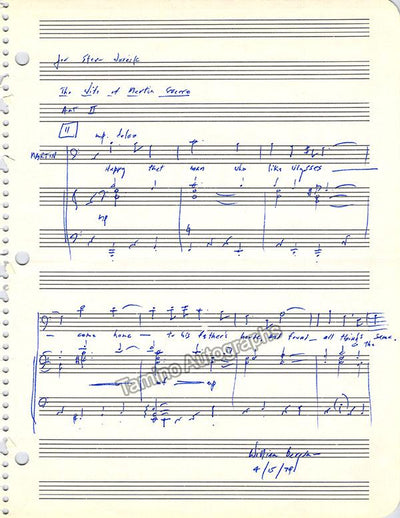 for Steven
The Wife of Martin Guerre
Act II
11
mp. dolce
MARTIN
Happy that man who like Ulysses
mp
came home — to his father's house and found — all things the same.
mp
William Bergsma
4/15/79
Tamino Autographs